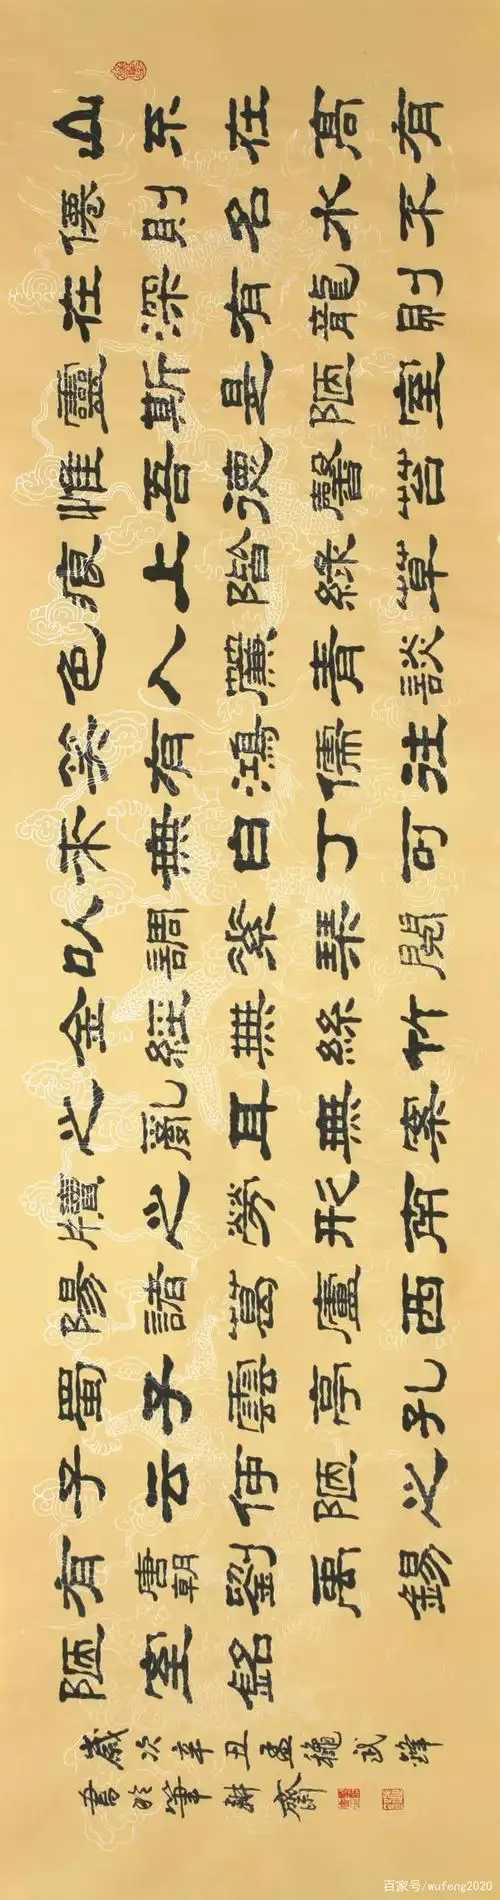 山不在高有
僊則名水不
在深有龍則
靈斯是陋室
惟吾德馨苔
痕上階綠草
色入簾青談
笑有鴻儒往
来無白丁可
以調素琴閱
金經無絲竹
之亂耳無案
牘之勞形南
陽諸葛廬西
蜀子雲亭孔
子云何陋之
有唐朝劉禹錫
陋室銘
歲次辛丑孟龝武鋒
書於筆耕齋
百家号/wufeng2020